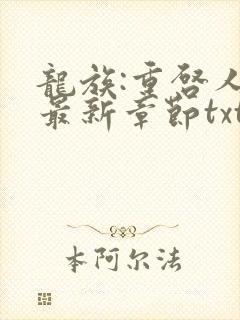 龍族:重啓人
最新章節txt
本阿尔法